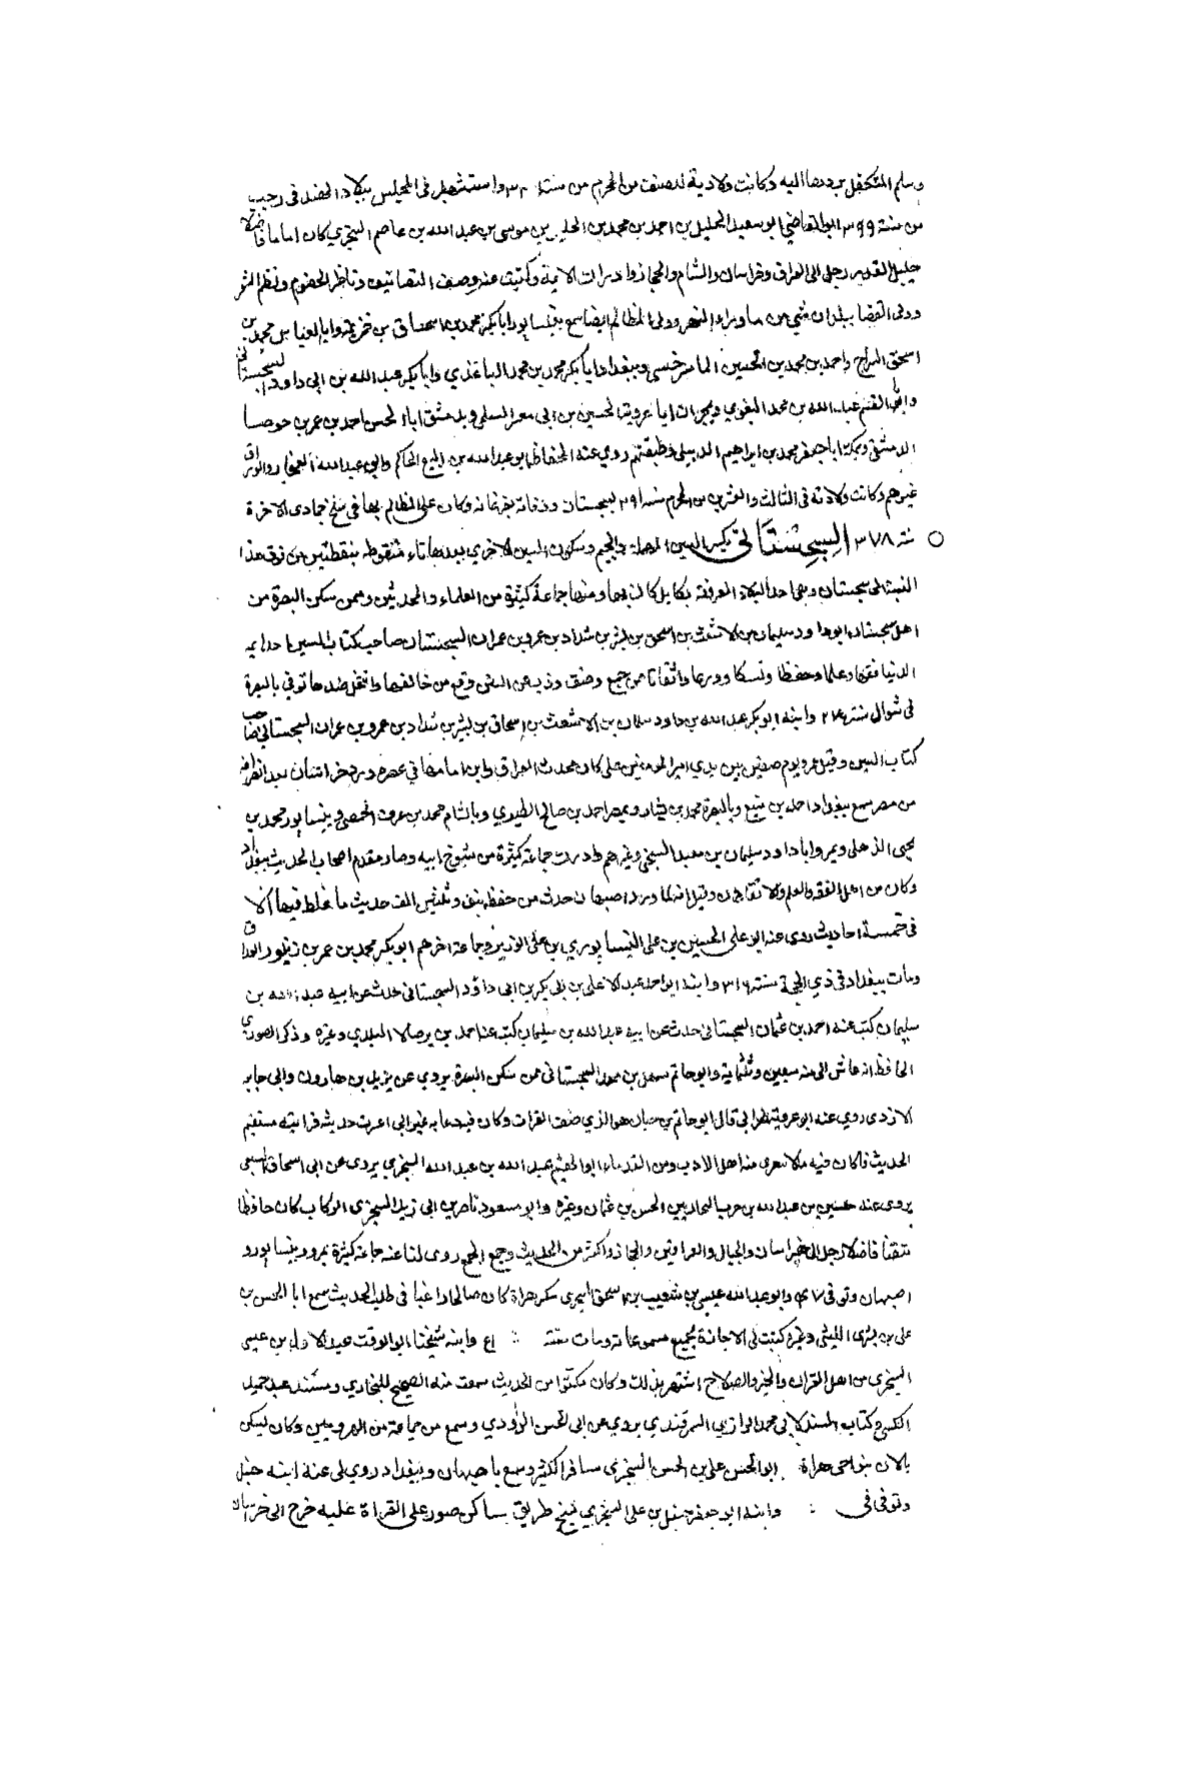 وسلم المتكفل بردها اليه وكانت ولادته للنصف من المحرم من سنة واستشهد في المجلس ببلاد الهند في رجب
من سنة ٣٩٩ القاضي ابو سعيد الخليل بن احمد بن محمد بن الخليل بن موسى بن عبد الله بن عاصم السجزي كان اماما فاضلا
جليل القدر رحل الى العراق وخراسان والشام والحجاز وادرك الائمة وكتبت عنه وصنف التصانيف وناظر الخصوم ونظم الشعر
وولى القضا ببلدان شتى من ما وراء النهر وولى المظالم ايضا سمع بنيسابور ابا بكر محمد بن اسحاق بن خزيمة وابا العباس محمد بن
اسحق السراج واحمد بن محمد بن الحسين الماسرخسي وببغداد ابا بكر محمد بن محمد الباغندي وابا بكر عبد الله بن ابي داود السجستاني
وابا القسم عبد الله بن محمد البغوي وبحران ابا عروبة الحسين بن ابي معشر السلمي وبدمشق ابا الحسن احمد بن عمير بن حوصا
الدمشقي وبمكة ابا جعفر محمد بن ابراهيم الديبلي وطبقتهم روي عنه الحفاظ ابو عبد الله بن البيع الحاكم وابو عبد الله الغنجار والوراق
غيرهم وكانت ولادته في الثالث والعشرين من المحرم سنة ٢٩١ بسجستان ووفاته بفرغانه وكان على المظالم بها في سلخ جمادى الاخرة
سنة ٣٧٨ السِجِسْتَاني بكسر السين المهملة والجيم وسكون السين الاخرى بعدها تاء منقوطه بنقطتين من فوق هذا
النسبة الى سجستان وهي احد البلاد المعروفة بكابل كان بها ومنها جماعة كثيرة من العلماء والمحدثين وممن سكن البصرة من
اهل سجستان ابو داود سليمان بن الاشعث بن اسحق بن بشر بن شداد بن عمرو بن عمران السجستاني صاحب كتاب السنن احد ايمه
الدنيا فقها وعلما وحفظا ونسكا وورعا واتقانا ممن جمع وصنف وذب عن السنن وقمع من خالفها وانتحل ضدها توفي بالبصرة
في شوال سنة ٢٧٥ وابنه ابو بكر عبد الله بن داود سلمان بن الاشعث بن اسحاق بن بشير بن شداد بن عمرو بن عمران السجستاني صاحب
كتاب السنن وقتل عمرو يوم صفين بين يدي امير المومنين علي كان محدث العراق وابن امامها في عصره ورد خراسان بعد انصرافه
من مصر سمع ببغداد احمد بن منيع وبالبصرة محمد بن بشار وبمصر احمد بن صالح الطبري وبالشام محمد بن عوف الحمصي وبنيسابور محمد بن
يحيى الذهلي وبمرو ابا داود سليمان بن معبد السنجي وغيرهم وادرك جماعة كثيرة من شيوخ ابيه وصار مقدم اصحاب الحديث ببغداد
وكان من اهل الفقه والعلم والاتقان وقيل انه لما ورد اصبهان حدث من حفظه بنيف وثلثين الف حديث ما غلط فيها الا
في خمسة احاديث روى عنه ابو علي الحسين بن علي النيسابوري بن علي الوزير وجماعة اخرهم ابو بكر محمد بن عمر بن زنبور الوراق
ومات ببغداد في ذي الحجة سنة ٣١٦ وابنه ابو احمد عبد الاعلى بن ابي بكر بن ابي داؤد السجستاني حدث عن ابيه عبد الله بن
سليمان كتب عنه احمد بن عثمان السجستاني حدث عن ابيه عبد الله بن سليمان كتب عنه احمد بن برصالا البلدي وغيره وذكر الصوري
الحافظ انه عاش الى سنه سبعين وثلثماية وابو حاتم سهل بن محمد السجستاني ممن سكن البصرة يروي عن يزيد بن هارون وابي جابر
الازدي روي عنه ابو عروبة قال ابو حاتم بن حبان هو الذي صنف القرات وكان فيه دعابه غير اني اعتبرت حديثه فرايته مستقيم
الحديث فاكان فيه ما لا يتعرى منه اهل الادب ومن القدماء ابو الهيثم عبد الله بن عبد الله السجزي يروى عن ابي اسحاق السبيعي
يروي عنه حسين بن عبد الله بن حرب الحسن بن عثمان وغيره وابو مسعود ناصر بن ابي زيد السجزي الركاب كان حافظا
متقنا فاضلا رحل الى خراسان والجبال والعراقين والحجاز واكثر من الحديث وجمع الجمع روى لنا عنه جماعة كثيرة بمرو ونيسابور و
اصبهان وتوفى ٤٧٧ وابو عبد الله عيسى بن شعيب بن اسحق السجزي سكن هراة كان صالحا راغبا في طلب الحديث سمع ابا الحسن بن
على بن بشرى الليثي وغيره كتبت لي الاجازة بجميع مسموعاته ومات سنة وابنه شيخنا ابو الوقت عبد الاول بن عيسى
السجزى من اهل القران والخير والصلاح اشتهر بذلك وكان مكثرا من الحديث سمعت منه الصحيح للبخاري ومسند عبد حميد
الكسي وكتاب المسند لابي محمد الدارمي السمرقندي يروي عن ابى الحسن الداودي وسمع من جماعة من الهرويين وكان يسكن
بالان بنواحى هراة ابو الحسن علي بن الحسن السجزي سافر الكثير وسمع باصبهان وببغداد روي لي عنه ابنه حنبل
وتوفى في وابنه ابو جعفر حنبل بن علي السجزي شيخ طريق ساكن صور على القراة عليه خرج الى خراسان